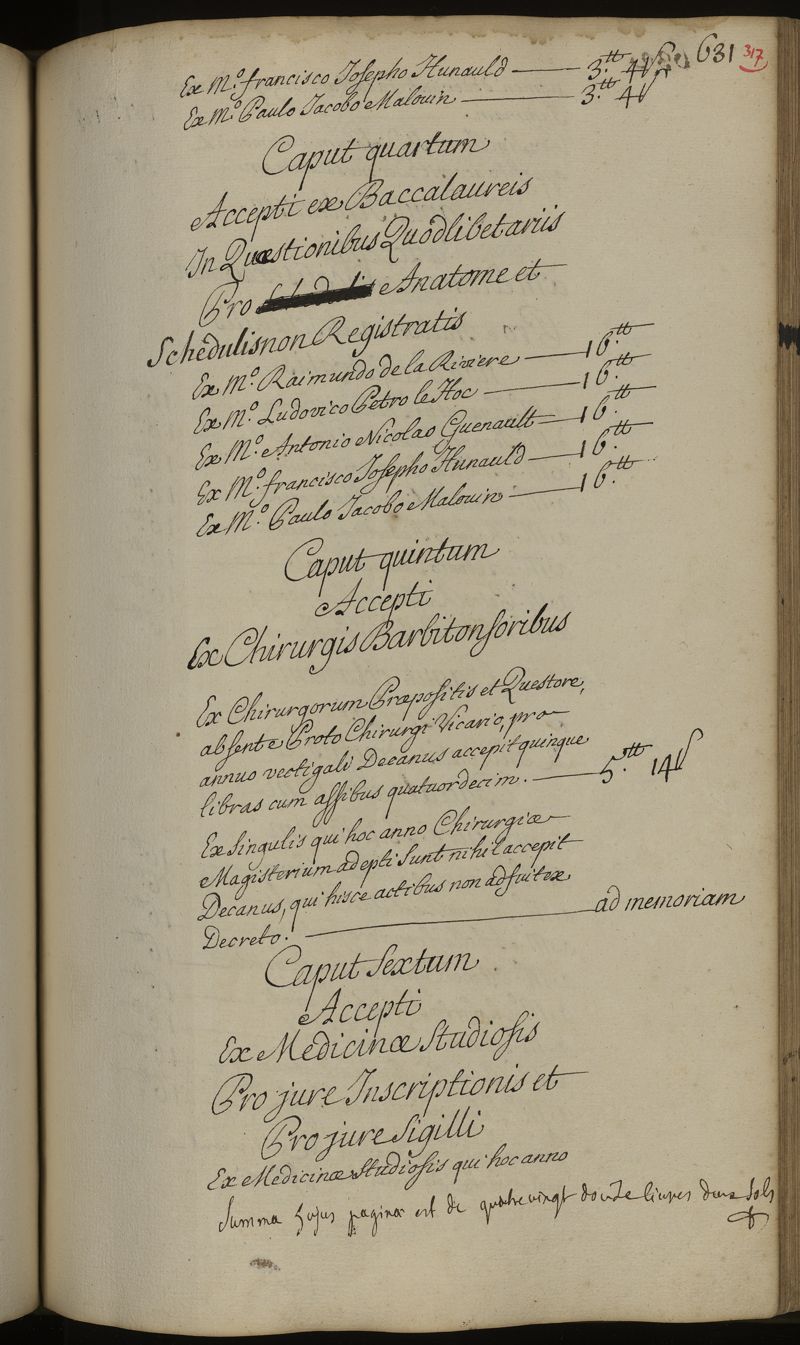 631 317
Ex M.º francisco Josepho Hunauld — 3.tt 4ſ
Ex M.º Paulo Jacobo Malouin — 3.tt 4ſ
Caput quartum
Accepti ex Baccalaureis
In Quæstionibus Quodlibetariis
Pro Anatome et
Schedulis non Registratis
Ex M.º Raimundo de la Riviere — 16.tt
Ex M.º Ludovico Petro le Hoc — 16.tt
Ex M.º Antonio Nicolao Guenault — 16.tt
Ex M.º francisco Josepho Hunauld — 16.tt
Ex M.º Paulo Jacobo Malouin — 16.tt
Caput quintum
Accepti
Ex Chirurgis Barbitonsoribus
Ex Chirurgorum Præpositis et Questore,
absente Proto Chirurgi Vicario, pro
annuo vectigali Decanus accepit quinque
libras cum assibus quatuordecim. — 5.tt 14ſ
Ex singulis qui hoc anno Chirurgiæ
Magisterium adepti sunt nihil accepit
Decanus, qui hisce actibus non adfuit ex
Decreto. — ad memoriam
Caput Sextum
Accepti
Ex Medicinæ Studiosis
Pro jure Inscriptionis et
Pro jure Sigilli
Ex Medicinæ Studiosis qui hoc anno
Summa hujus paginæ est de quatre vingt douze livres deux sols